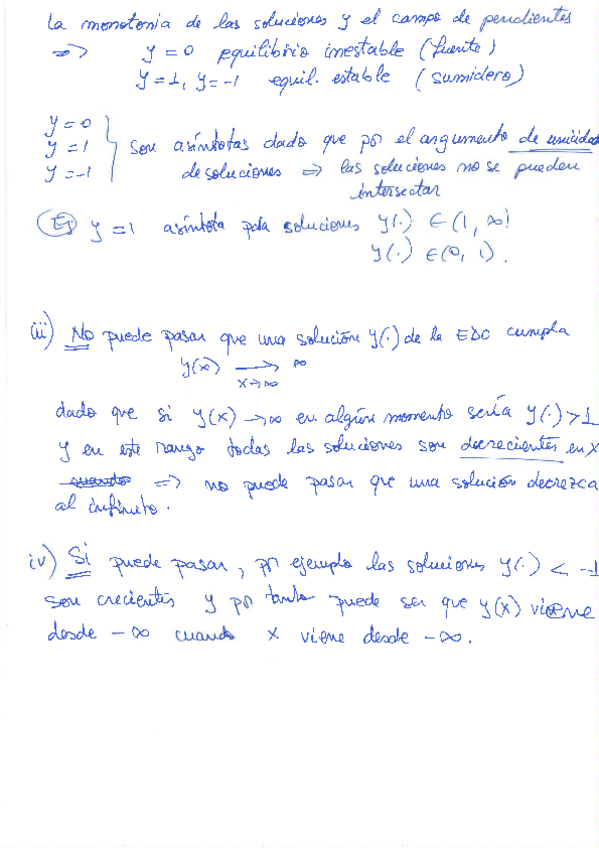 la monotonia de las soluciones y el campo de pendientes
=> y = 0 equilibrio inestable (fuente)
y = 1, y = -1 equil. estable (sumidero)
y = 0
y = 1
y = -1
son asíntotas dado que por el argumento de unicidad
de soluciones => las soluciones no se pueden
intersectar
Ej y = 1 asíntota para soluciones y(·) ∈ (1, ∞)
y(·) ∈ (0, 1).
iii) No puede pasar que una solución y(·) de la EDO cumpla
y(x) → ∞
x→∞
dado que si y(x) → ∞ en algún momento sería y(·) > 1
y en este rango todas las soluciones son decrecientes en x
cuando => no puede pasar que una solución decrezca
al infinito.
iv) Si puede pasar, por ejemplo las soluciones y(·) < -1
son crecientes y por tanto puede ser que y(x) viene
desde -∞ cuando x viene desde -∞.